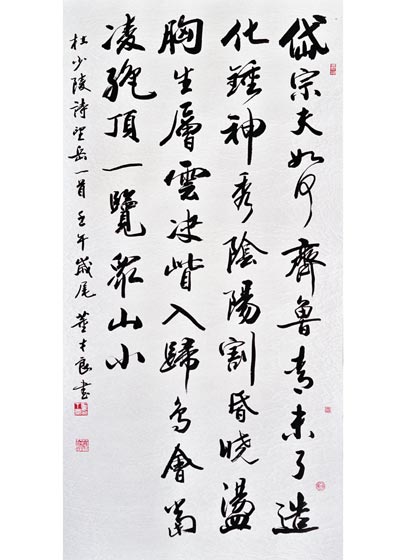 岱宗夫如何齊魯青未了造
化鍾神秀陰陽割昏曉盪
胸生層雲決眥入歸鳥會當
凌絶頂一覽眾山小
杜少陵詩望岳一首 壬午歲尾 董才良書